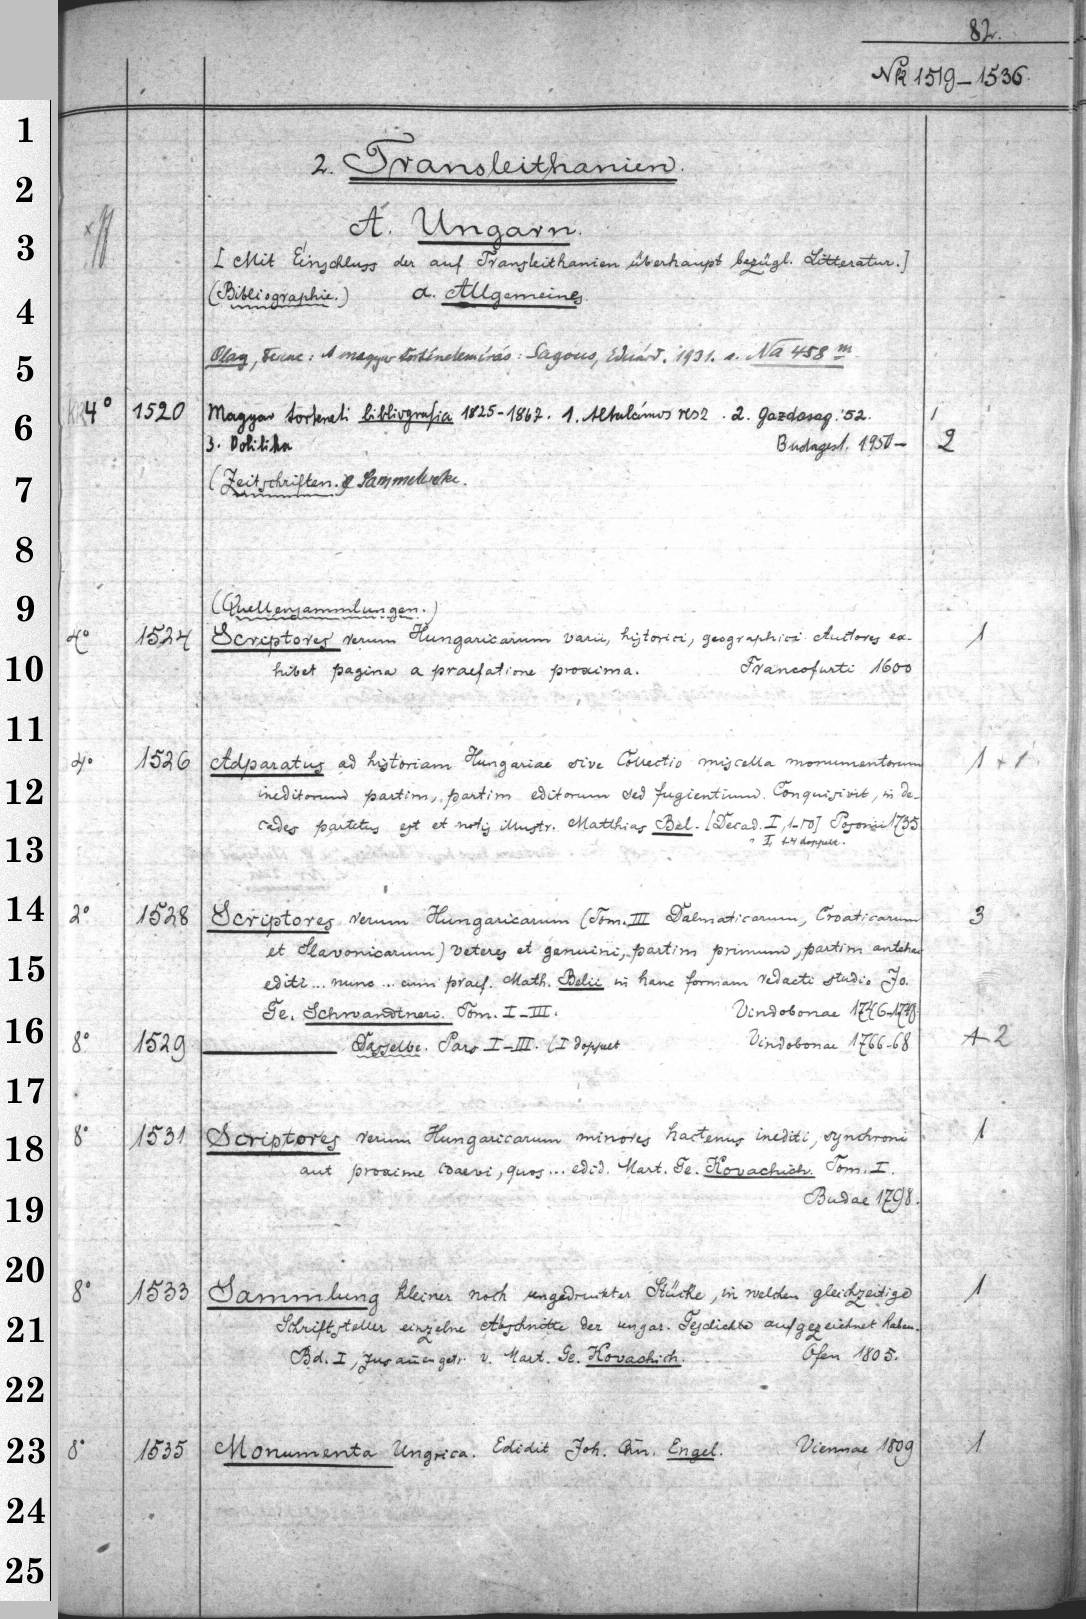 82.
Nk 1519-1536.
2. Transleithanien.
A. Ungarn.
[Mit Einschluss der auf Transleithanien überhaupt bezügl. Litteratur.]
(Bibliographie.) a. Allgemeines.
Olay, Ferenc: A magyar történelemírás: Sagous, Eduárd. 1931. s. Na 458 m
4° 1520 Magyar történeti bibliografia 1825-1867. 1. Általános rész. 2. Gazdaság. '52. 1
3. Politika Budapest. 1950- 2
(Zeitschriften.) & Sammelwerke.
(Quellensammlungen.)
4° 1524 Scriptores rerum Hungaricarum varii, historici, geographici. Auctores ex- 1
hibet pagina a praefatione proxima. Francofurti 1600
4° 1526 Adparatus ad historiam Hungariae sive Collectio miscella monumentorum 1 + 1
ineditorum partim, partim editorum sed fugientium. Conquisivit, in de-
cades partitus est et notis illustr. Matthias Bel. [Decad. I, 1-10] Posonii 1735
" I, 1-4 doppelt.
2° 1528 Scriptores rerum Hungaricarum (Tom. III Dalmaticarum, Croaticarum 3
et Slavonicarum) veteres et genuini, partim primum, partim antehac
editi ... nunc ... cum praef. Math. Belii in hanc formam redacti studio Jo.
Ge. Schwandtneri. Tom. I-III. Vindobonae 1746-1748
8° 1529 Dasselbe. Pars I-III. (I doppelt Vindobonae 1766-68 2
8° 1531 Scriptores rerum Hungaricarum minores hactenus inediti, synchroni 1
aut proxime coaevi, quos ... edid. Mart. Ge. Kovachich. Tom. I.
Budae 1798.
8° 1533 Sammlung kleiner noch ungedruckter Stücke, in welchen gleichzeitige 1
Schriftsteller einzelne Abschnitte der ungar. Geschichte aufgezeichnet haben.
Bd. I, zusam̅enget. v. Mart. Ge. Kovachich. Ofen 1805.
8° 1535 Monumenta Ungrica. Edidit Joh. Chn. Engel. Viennae 1809 1
1
2
3
4
5
6
7
8
9
10
11
12
13
14
15
16
17
18
19
20
21
22
23
24
25